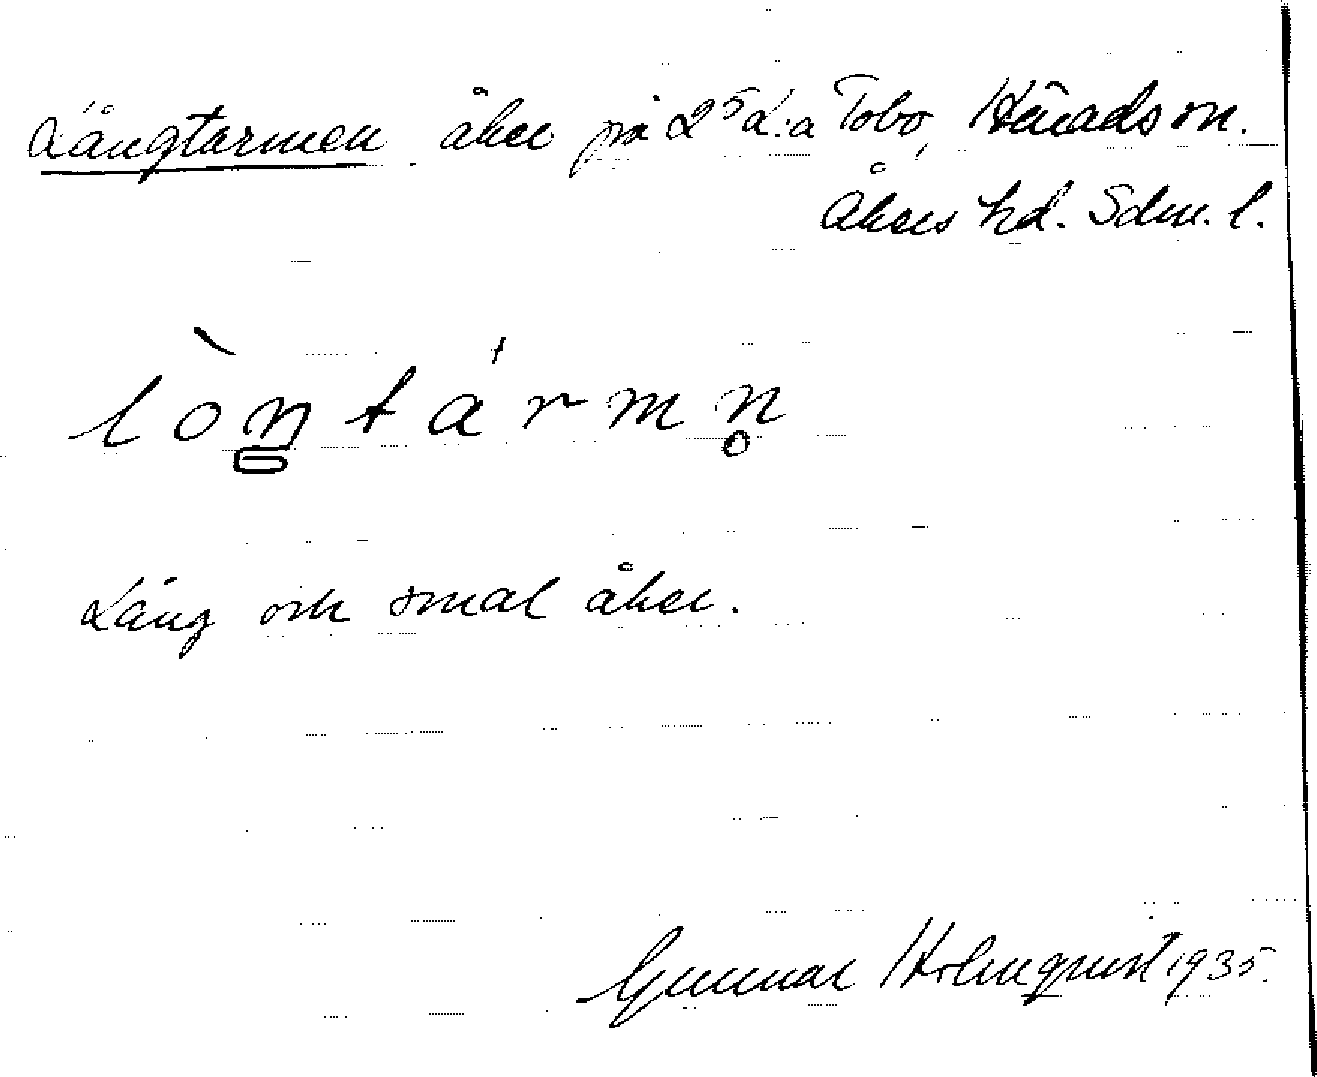 Långtarmen åker på 2⁵ L:a Tobo, Härads sn.
Åkers hd. Sdm. l.
lòn̠tármn̥
Lång och smal åker.
Gunnar Holmquist 1935.